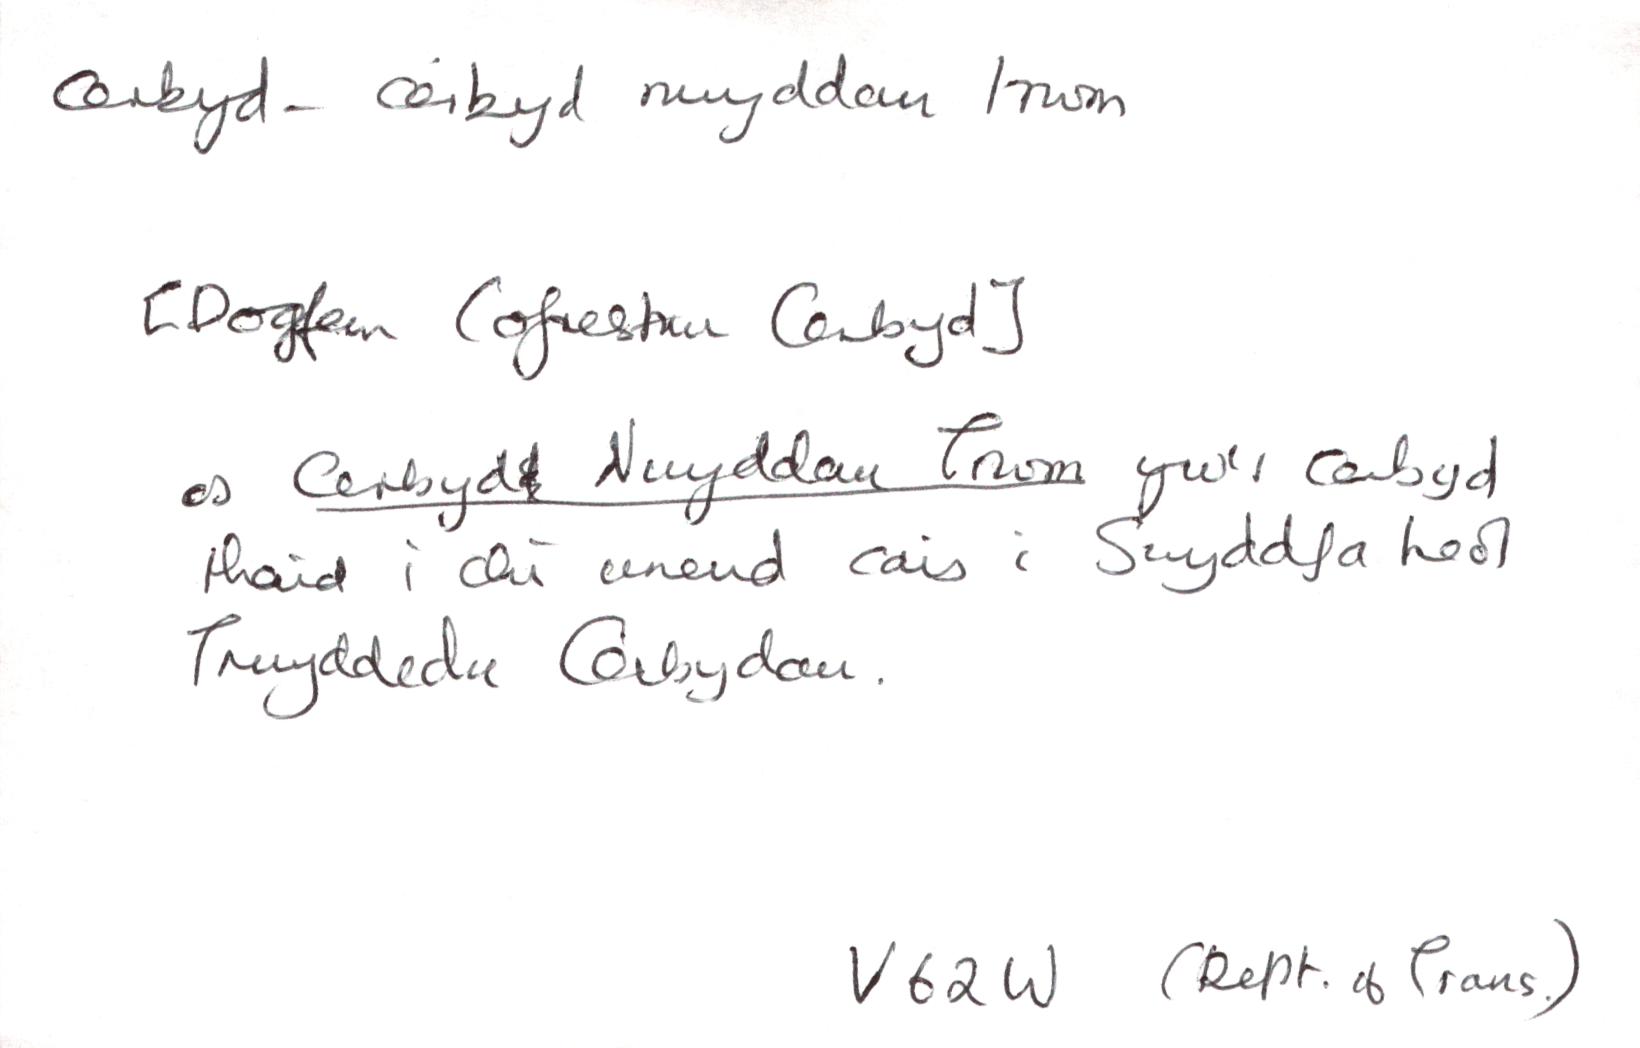 cerbyd - cerbyd nwyddau trwm
[Dogfen Cofrestru Cerbyd]
os Cerbyd Nwyddau Trwm yw'r cerbyd
rhaid i chi wneud cais i Swyddfa leol
Trwyddedu Cerbydau.
V62W (Dept. of Trans.)